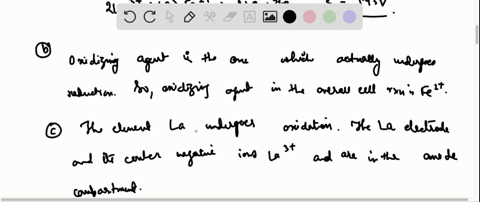 ⓑ Oxidizing agent is the one which actually undergoes
reduction. So, oxidizing agent in the overall cell rxn is Fe²⁺.
ⓒ The element La undergoes oxidation. The La electrode
and its center negative ions La³⁺ and are in the anode
combartment.